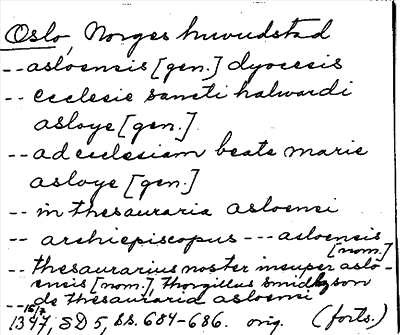 Oslo, Norges huvudstad
-- asloensis [gen.] dyocesis
-- ecclesie sancti halwardi
asloye [gen.]
-- ad ecclesiam beate marie
asloye [gen.]
-- in thesauraria asloensi
-- archiepiscopus --- asloensis [nom.]
-- thesaurarius noster insuper aslo-
ensis [nom.], thorgillus smidhyson
-- de thesauraria asloensi
1347, SD 5, ss. 684-686. orig. (forts.)